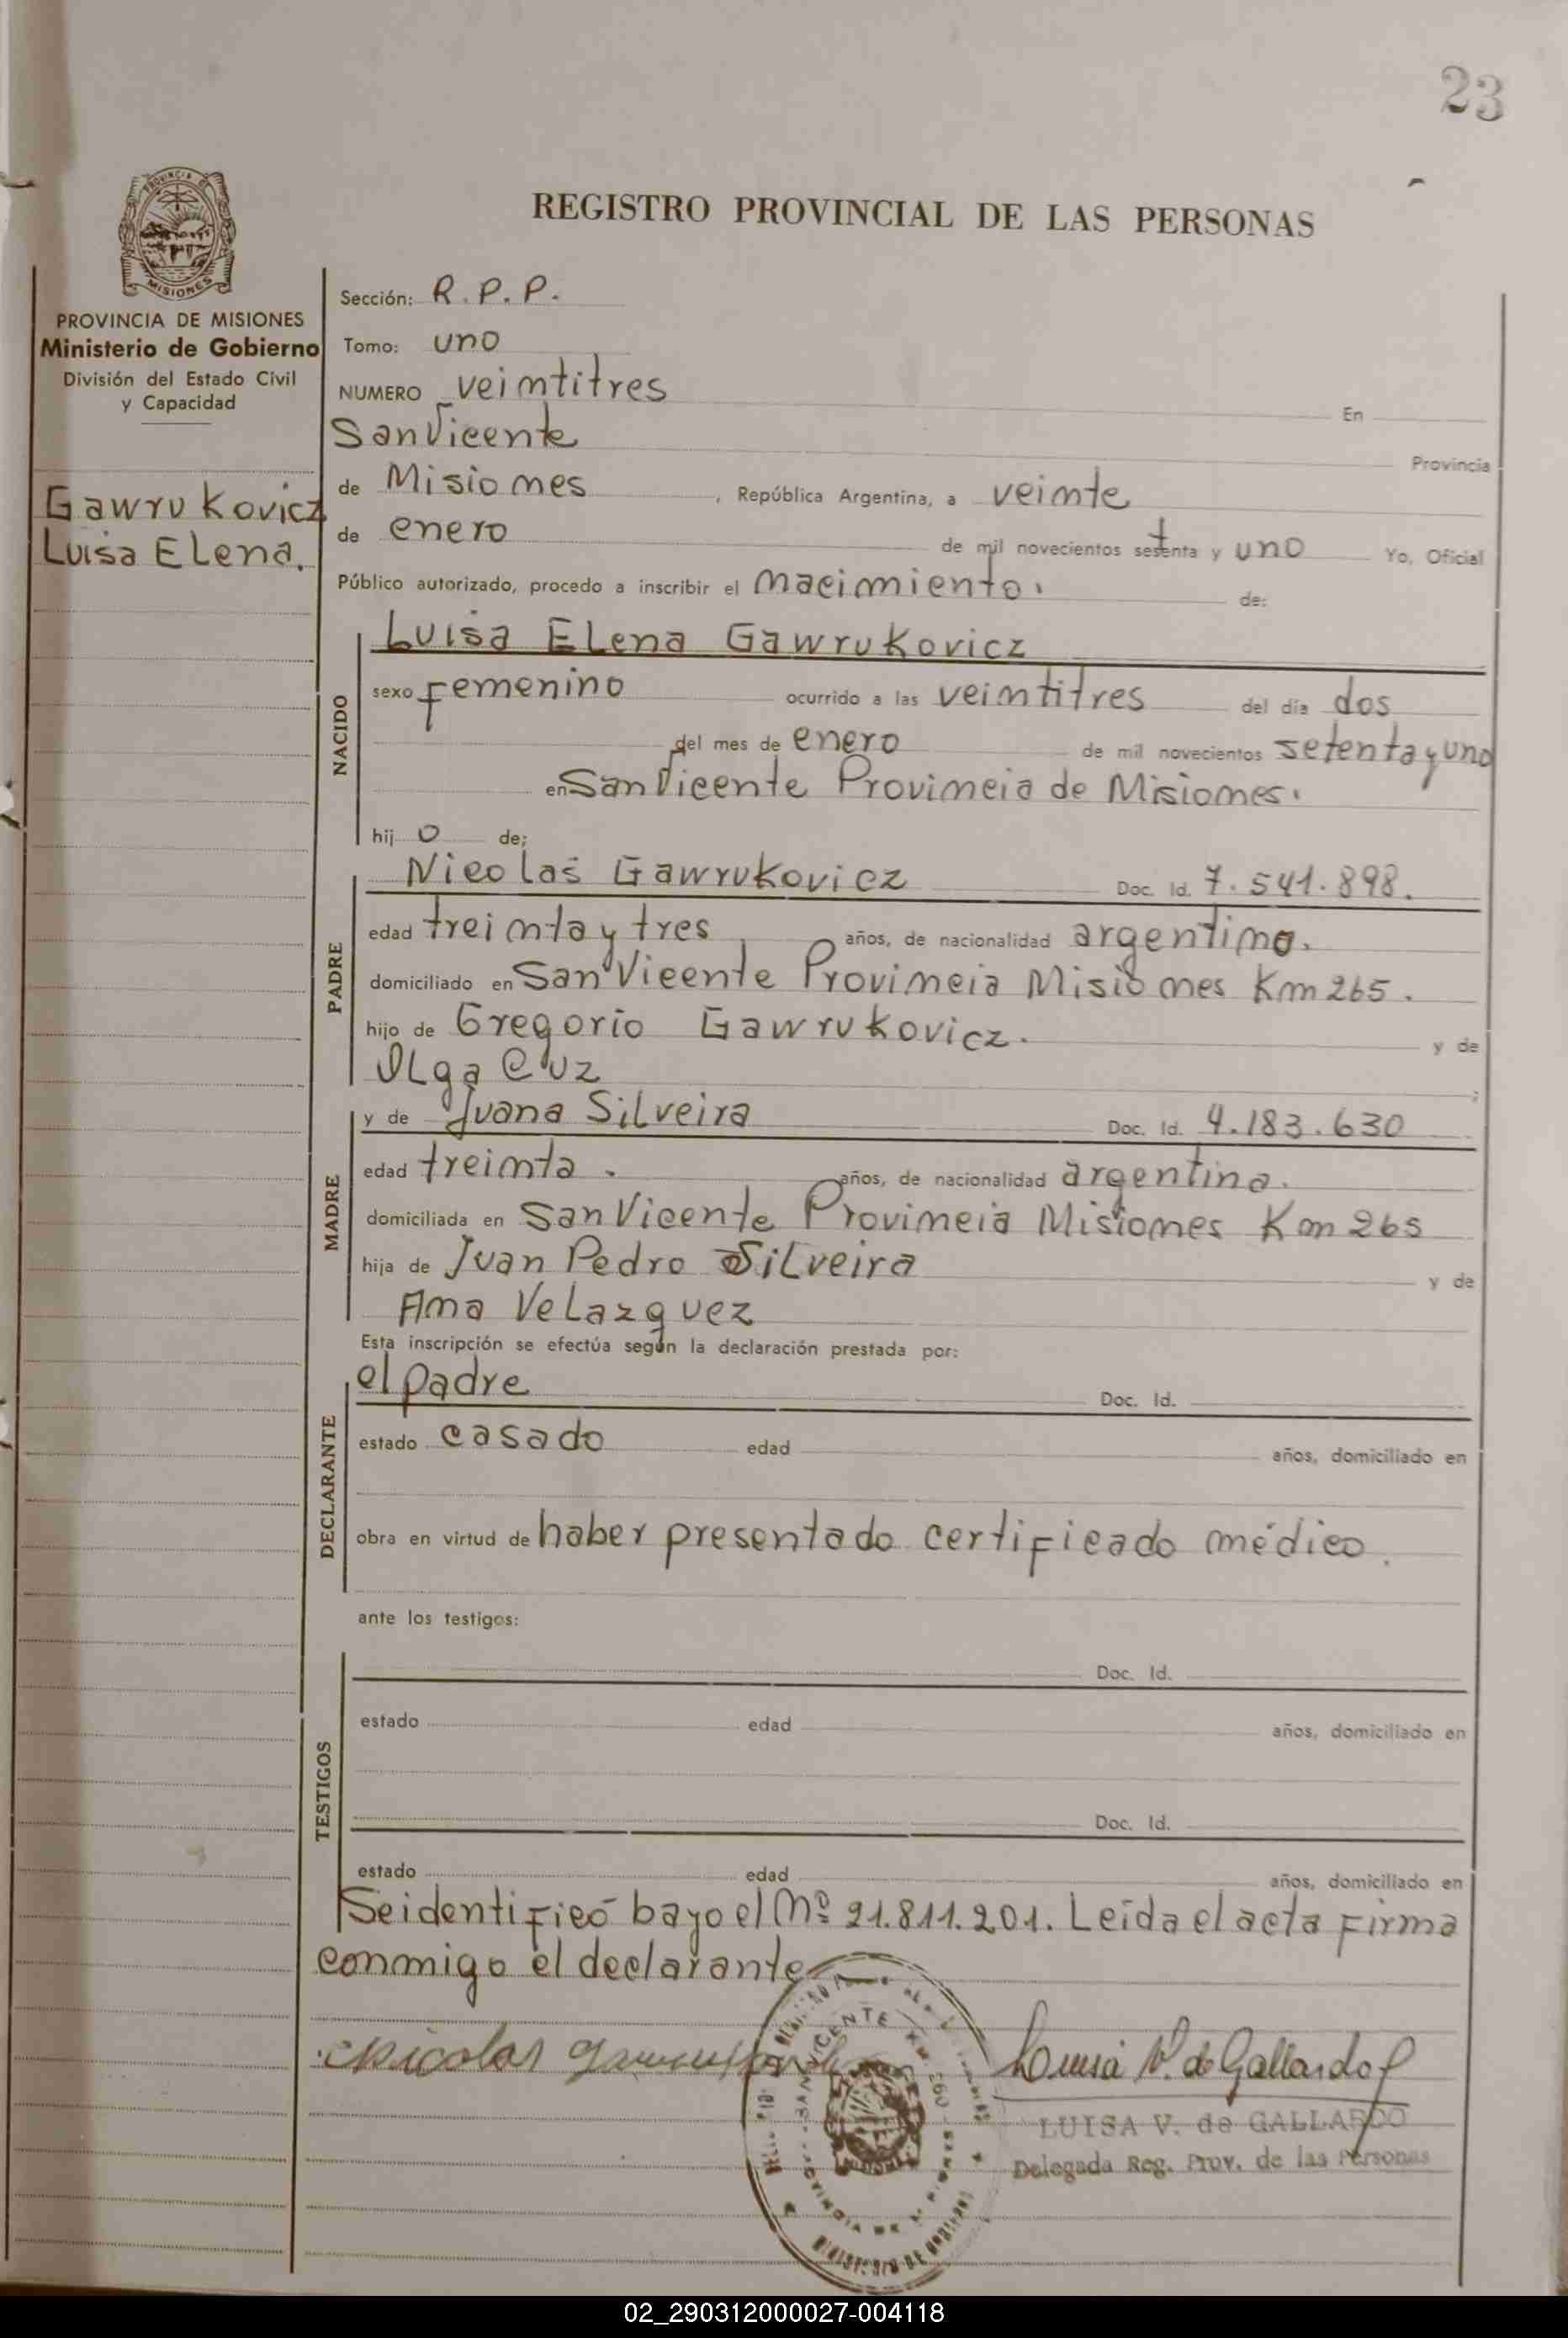 23
REGISTRO PROVINCIAL DE LAS PERSONAS
PROVINCIA DE
MISIONES
PROVINCIA DE MISIONES
Ministerio de Gobierno
División del Estado Civil
y Capacidad
Gawrukovicz
Luisa Elena.
Sección: R. P. P.
Tomo: uno
NUMERO veintitres En
San Vicente Provincia
de Misiones, República Argentina, a veinte
de enero de mil novecientos setenta y uno Yo, Oficial
Público autorizado, procedo a inscribir el nacimiento. de:
NACIDO
Luisa Elena Gawrukovicz
sexo femenino ocurrido a las veintitres del día dos
del mes de enero de mil novecientos setenta y uno
en San Vicente Provincia de Misiones.
hij o de;
PADRE
Nicolas Gawrukovicz Doc. Id. 7.541.898.
edad treinta y tres años, de nacionalidad argentino.
domiciliado en San Vicente Provincia Misiones Km 265.
hijo de Gregorio Gawrukovicz. y de
Olga Cuz ;
MADRE
y de Juana Silveira Doc. Id. 4.183.630
edad treinta. años, de nacionalidad argentina.
domiciliada en San Vicente Provincia Misiones Km 265
hija de Juan Pedro Silveira y de
Ana Velazquez
Esta inscripción se efectúa según la declaración prestada por:
DECLARANTE
el padre Doc. Id.
estado casado edad años, domiciliado en
obra en virtud de haber presentado certificado médico.
ante los testigos:
TESTIGOS
Doc. Id.
estado edad años, domiciliado en
Doc. Id.
estado edad años, domiciliado en
Se identificó bajo el Nº 21.811.201. Leída el acta firma
conmigo el declarante
Nicolas
SAN VICENTE
MINISTERIO DE GOBIERNO
Luisa V. de Gallardo
LUISA V. de GALLARDO
Delegada Reg. Prov. de las Personas
02_290312000027-004118